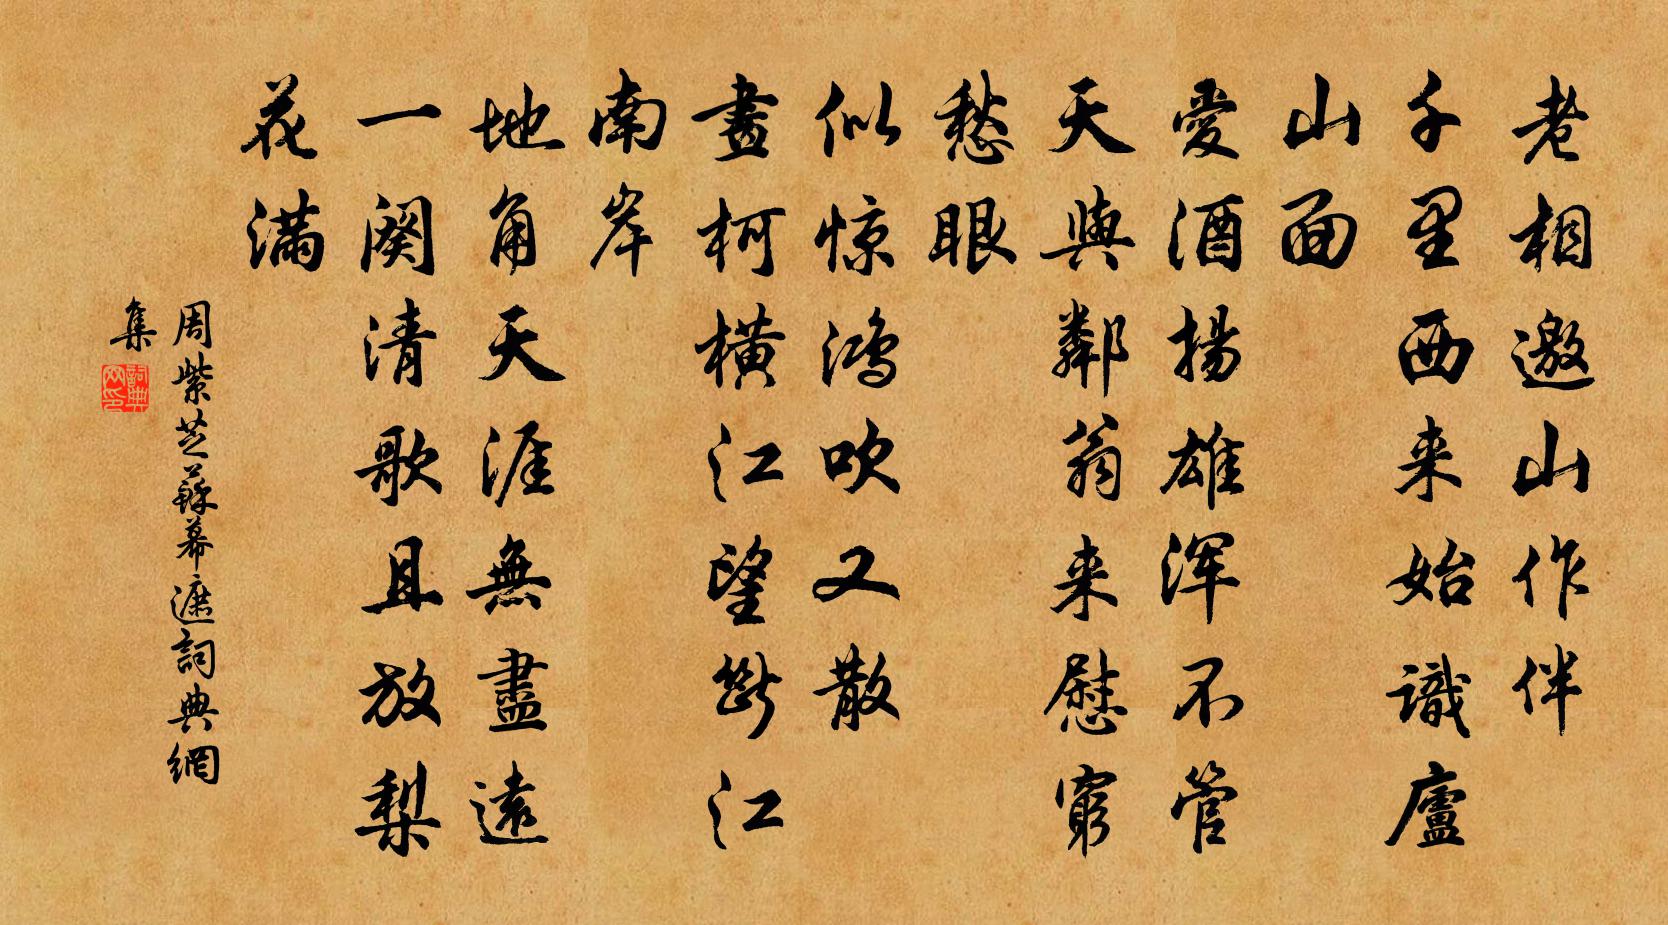 老相邀山作伴
千里西来始識廬
山面
愛酒揚雄浑不管
天與鄰翁来慰窮
愁眼
似惊鸿吹又散
畫柯横江望斷江
南岸
地角天涯無盡遠
一阕清歌且放梨
花满
周紫芝蘇幕遮詞典網
集
詞典网印